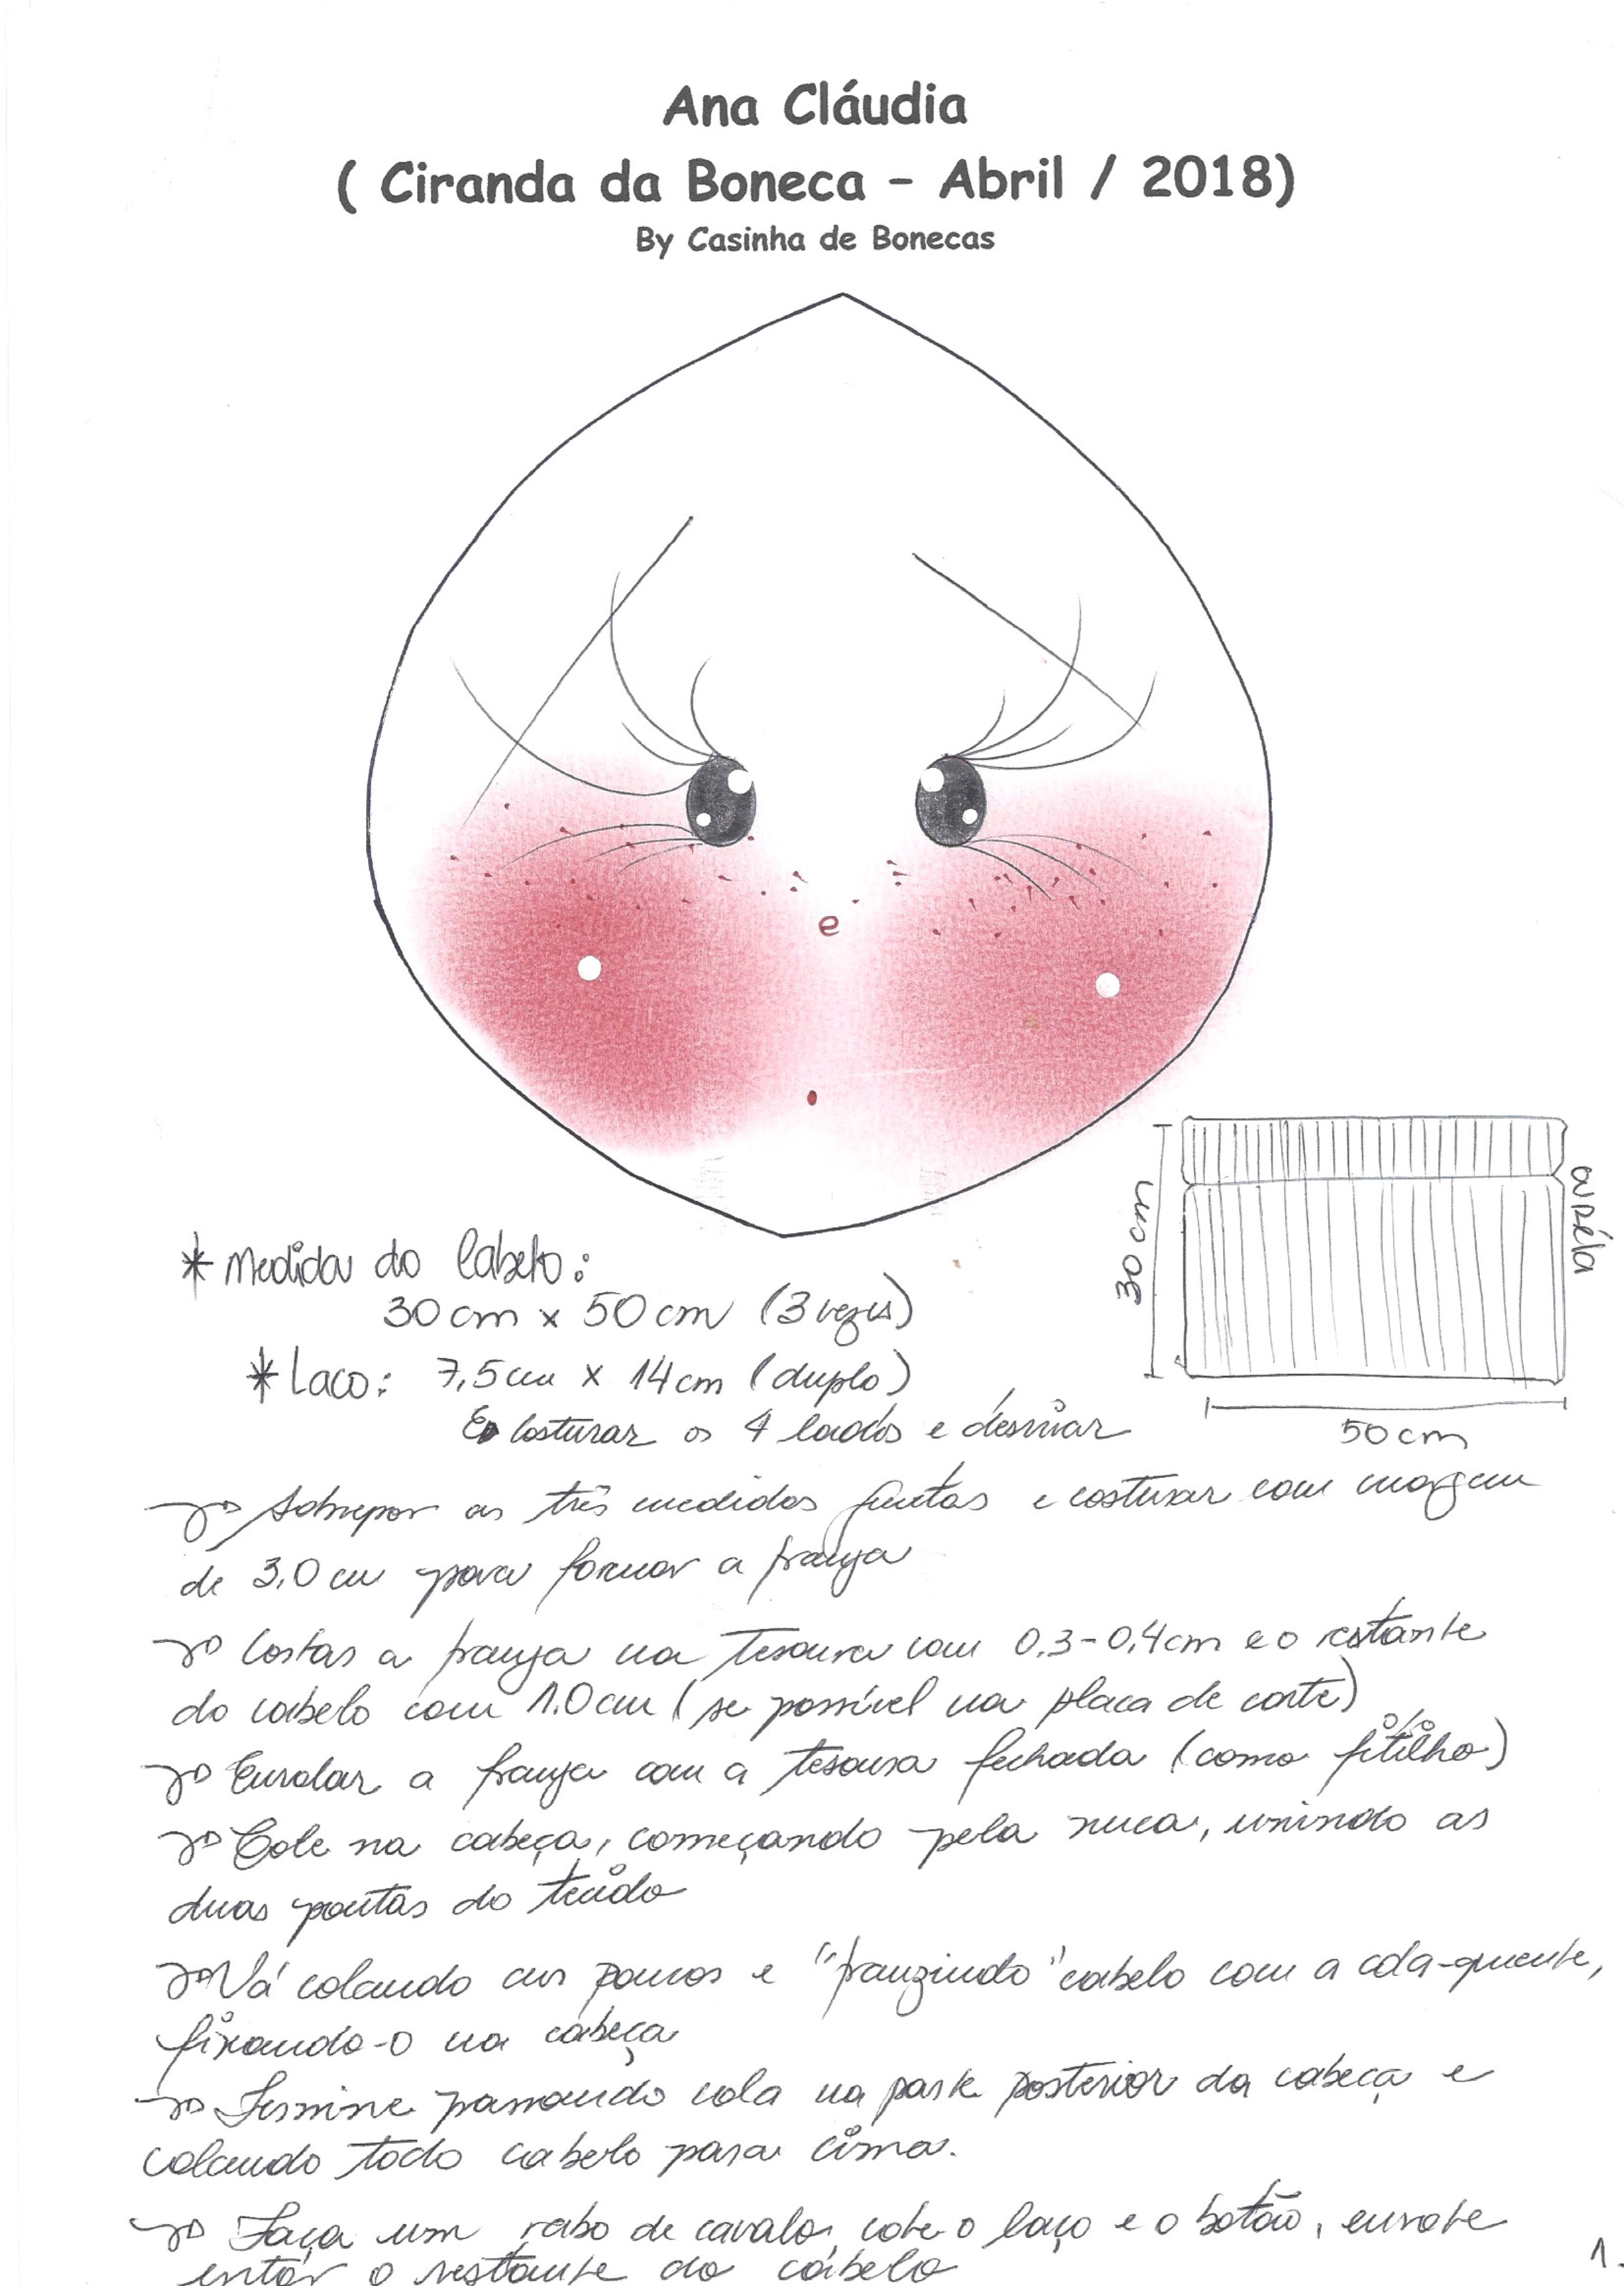 Ana Cláudia
( Ciranda da Boneca - Abril / 2018)
By Casinha de Bonecas
e
30 cm
ouréla
50 cm
* Medida do Cabelo:
30 cm x 50 cm (3 vezes)
* Laço: 7,5 cm x 14 cm (duplo)
Costurar os 4 lados e desvirar
Sobrepor as três medidas juntas e costurar com margem
de 3,0 cm para formar a franja
Cortar a franja na tesoura com 0,3-0,4cm e o restante
do cabelo com 1.0 cm (se possível na placa de corte)
Enrolar a franja com a tesoura fechada (como fitilho)
Cole na cabeça, começando pela nuca, unindo as
duas pontas do tecido
Vá colando aos poucos e "franzindo" cabelo com a cola-quente,
fixando-o na cabeça
Termine passando cola na parte posterior da cabeça e
colando todo cabelo para cima.
Faça um rabo de cavalo, cole o laço e o botão, enrole
então o restante do cabelo
1.